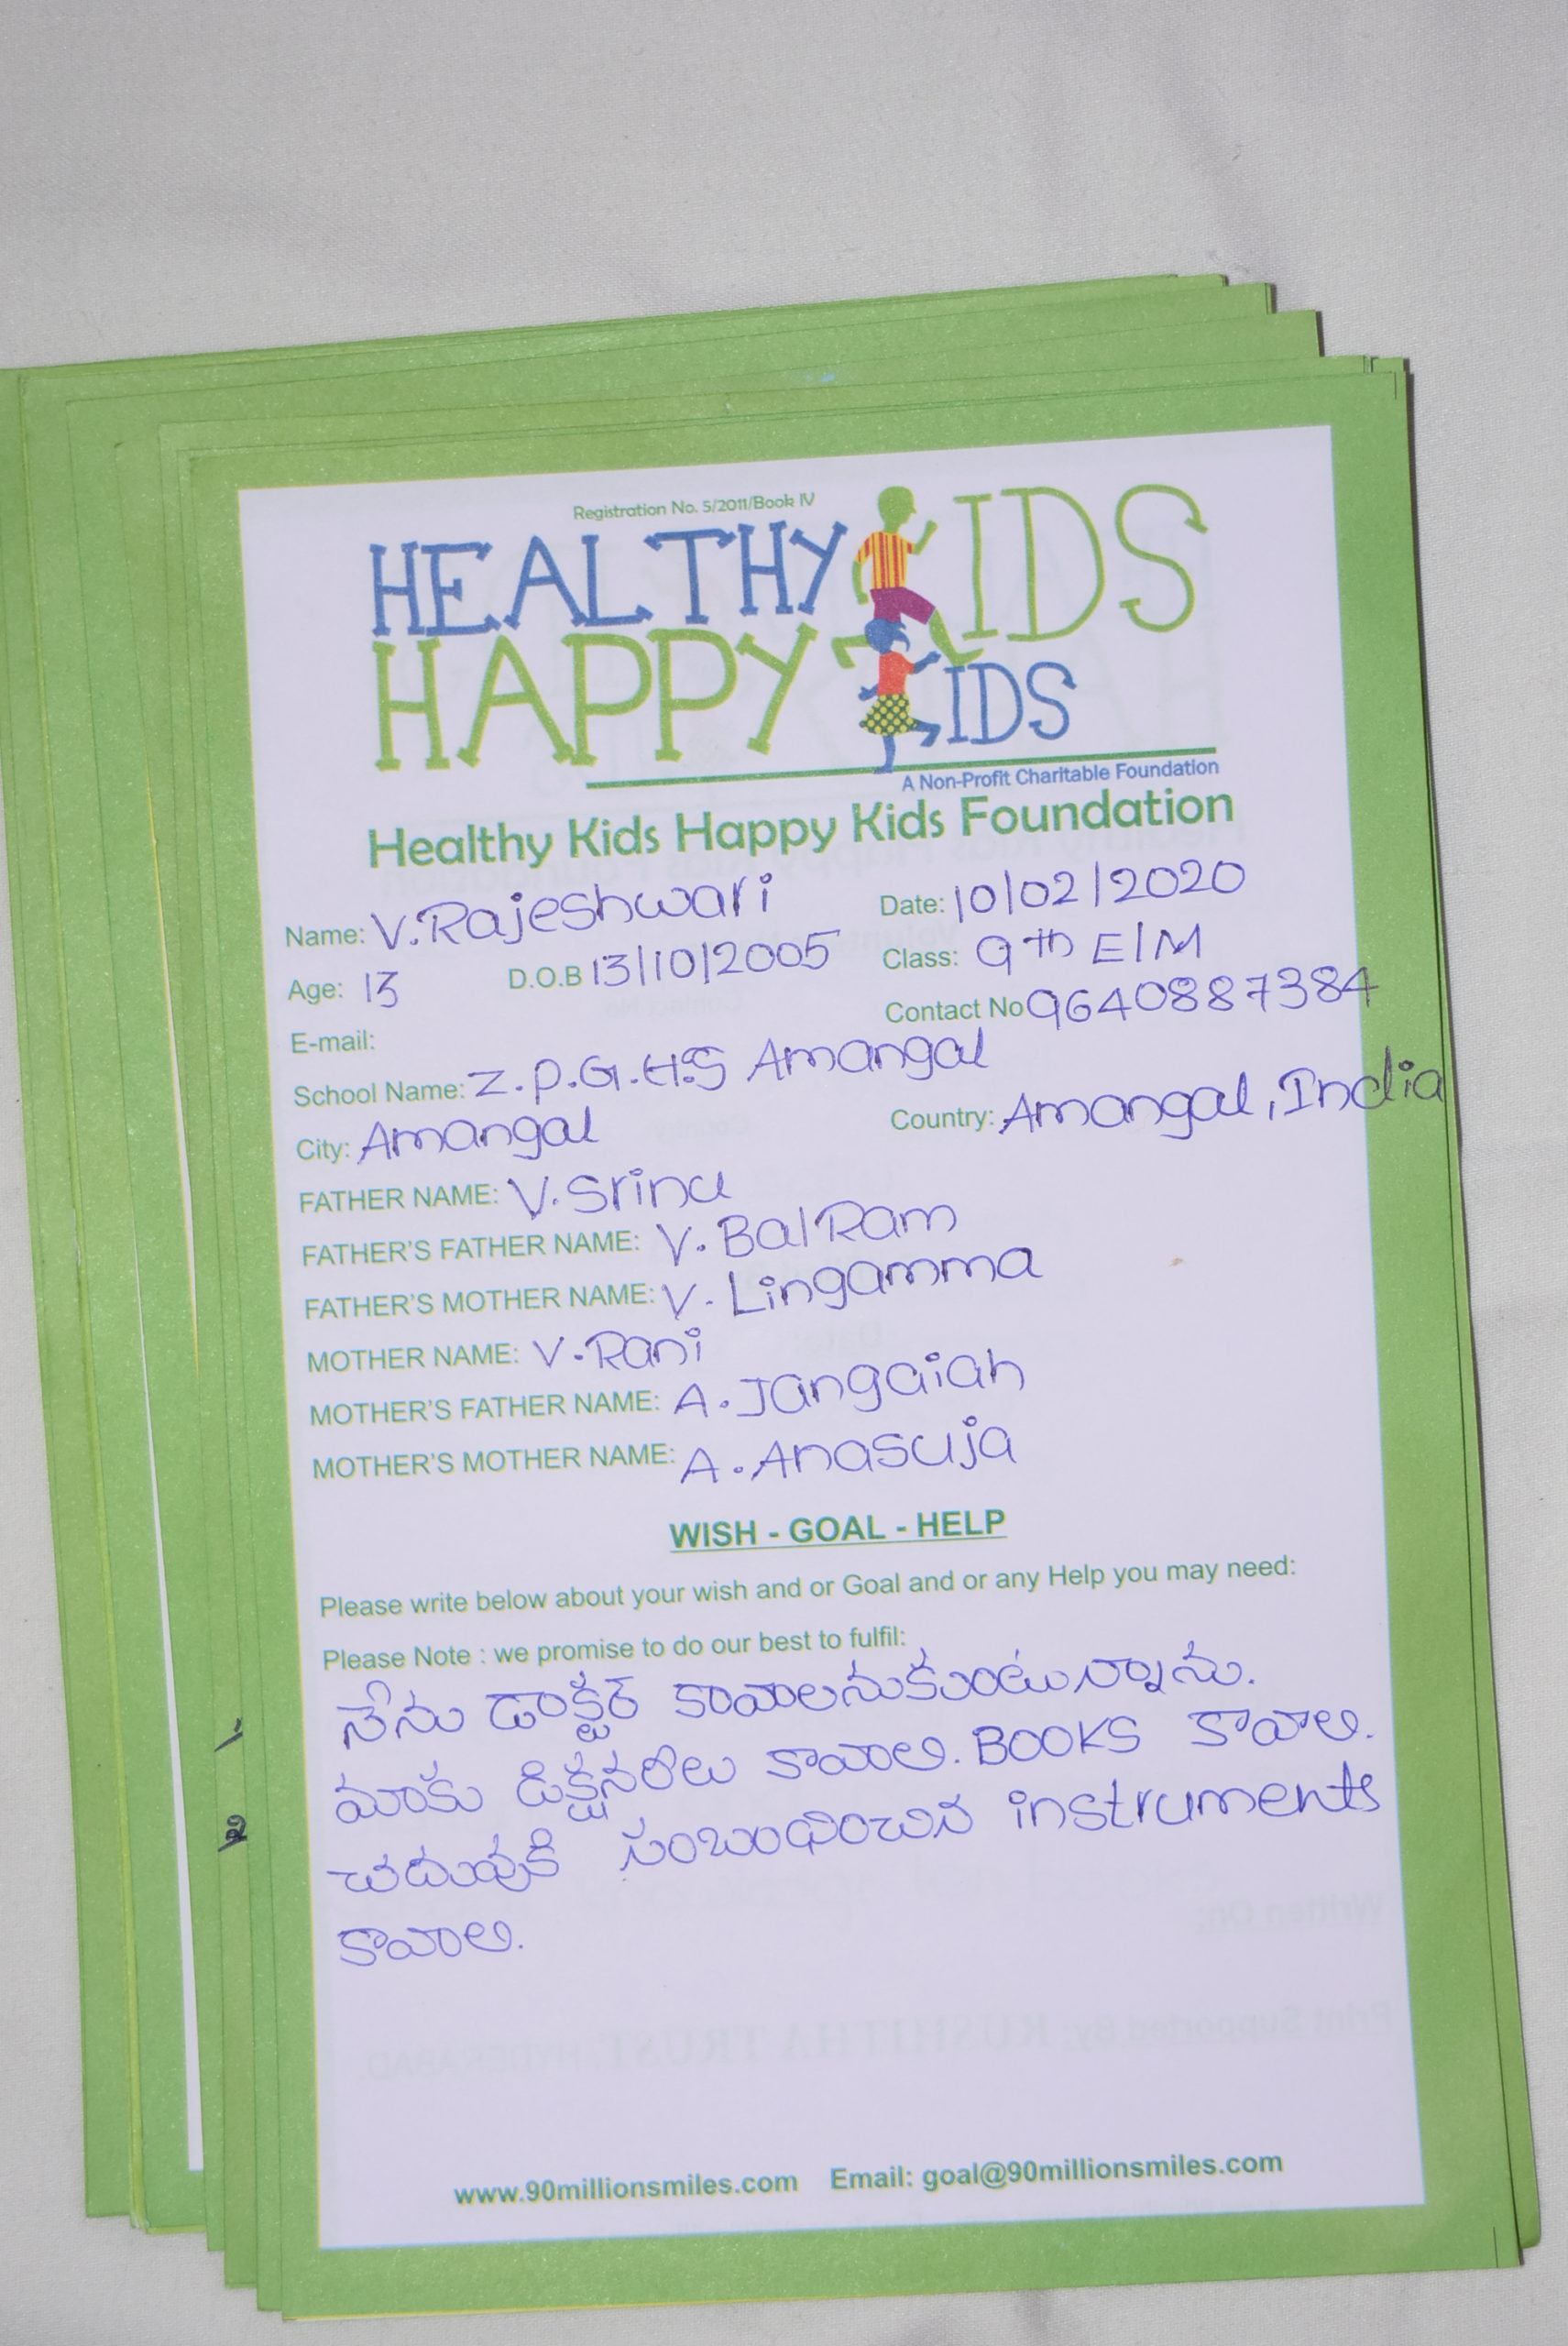 Registration No. 5/2011/Book IV
HEALTHY KIDS
HAPPY KIDS
A Non-Profit Charitable Foundation
Healthy Kids Happy Kids Foundation
Name: V.Rajeshwari Date: 10/02/2020
Age: 13 D.O.B 13/10/2005 Class: 9th E/M
E-mail: Contact No 9640887384
School Name: Z.P.G.H.S Amangal
City: Amangal Country: Amangal, India
FATHER NAME: V.Srinu
FATHER'S FATHER NAME: V.BalRam
FATHER'S MOTHER NAME: V. Lingamma
MOTHER NAME: V.Rani
MOTHER'S FATHER NAME: A.Jangaiah
MOTHER'S MOTHER NAME: A.Anasuja
WISH - GOAL - HELP
Please write below about your wish and or Goal and or any Help you may need:
Please Note : we promise to do our best to fulfil:
నేను డాక్టర్ కావాలనుకుంటున్నాను.
మాకు డిక్షనరీలు కావాలి. BOOKS కావాలి.
చదువుకి సంబంధించిన instruments
కావాలి.
www.90millionsmiles.com Email: goal@90millionsmiles.com